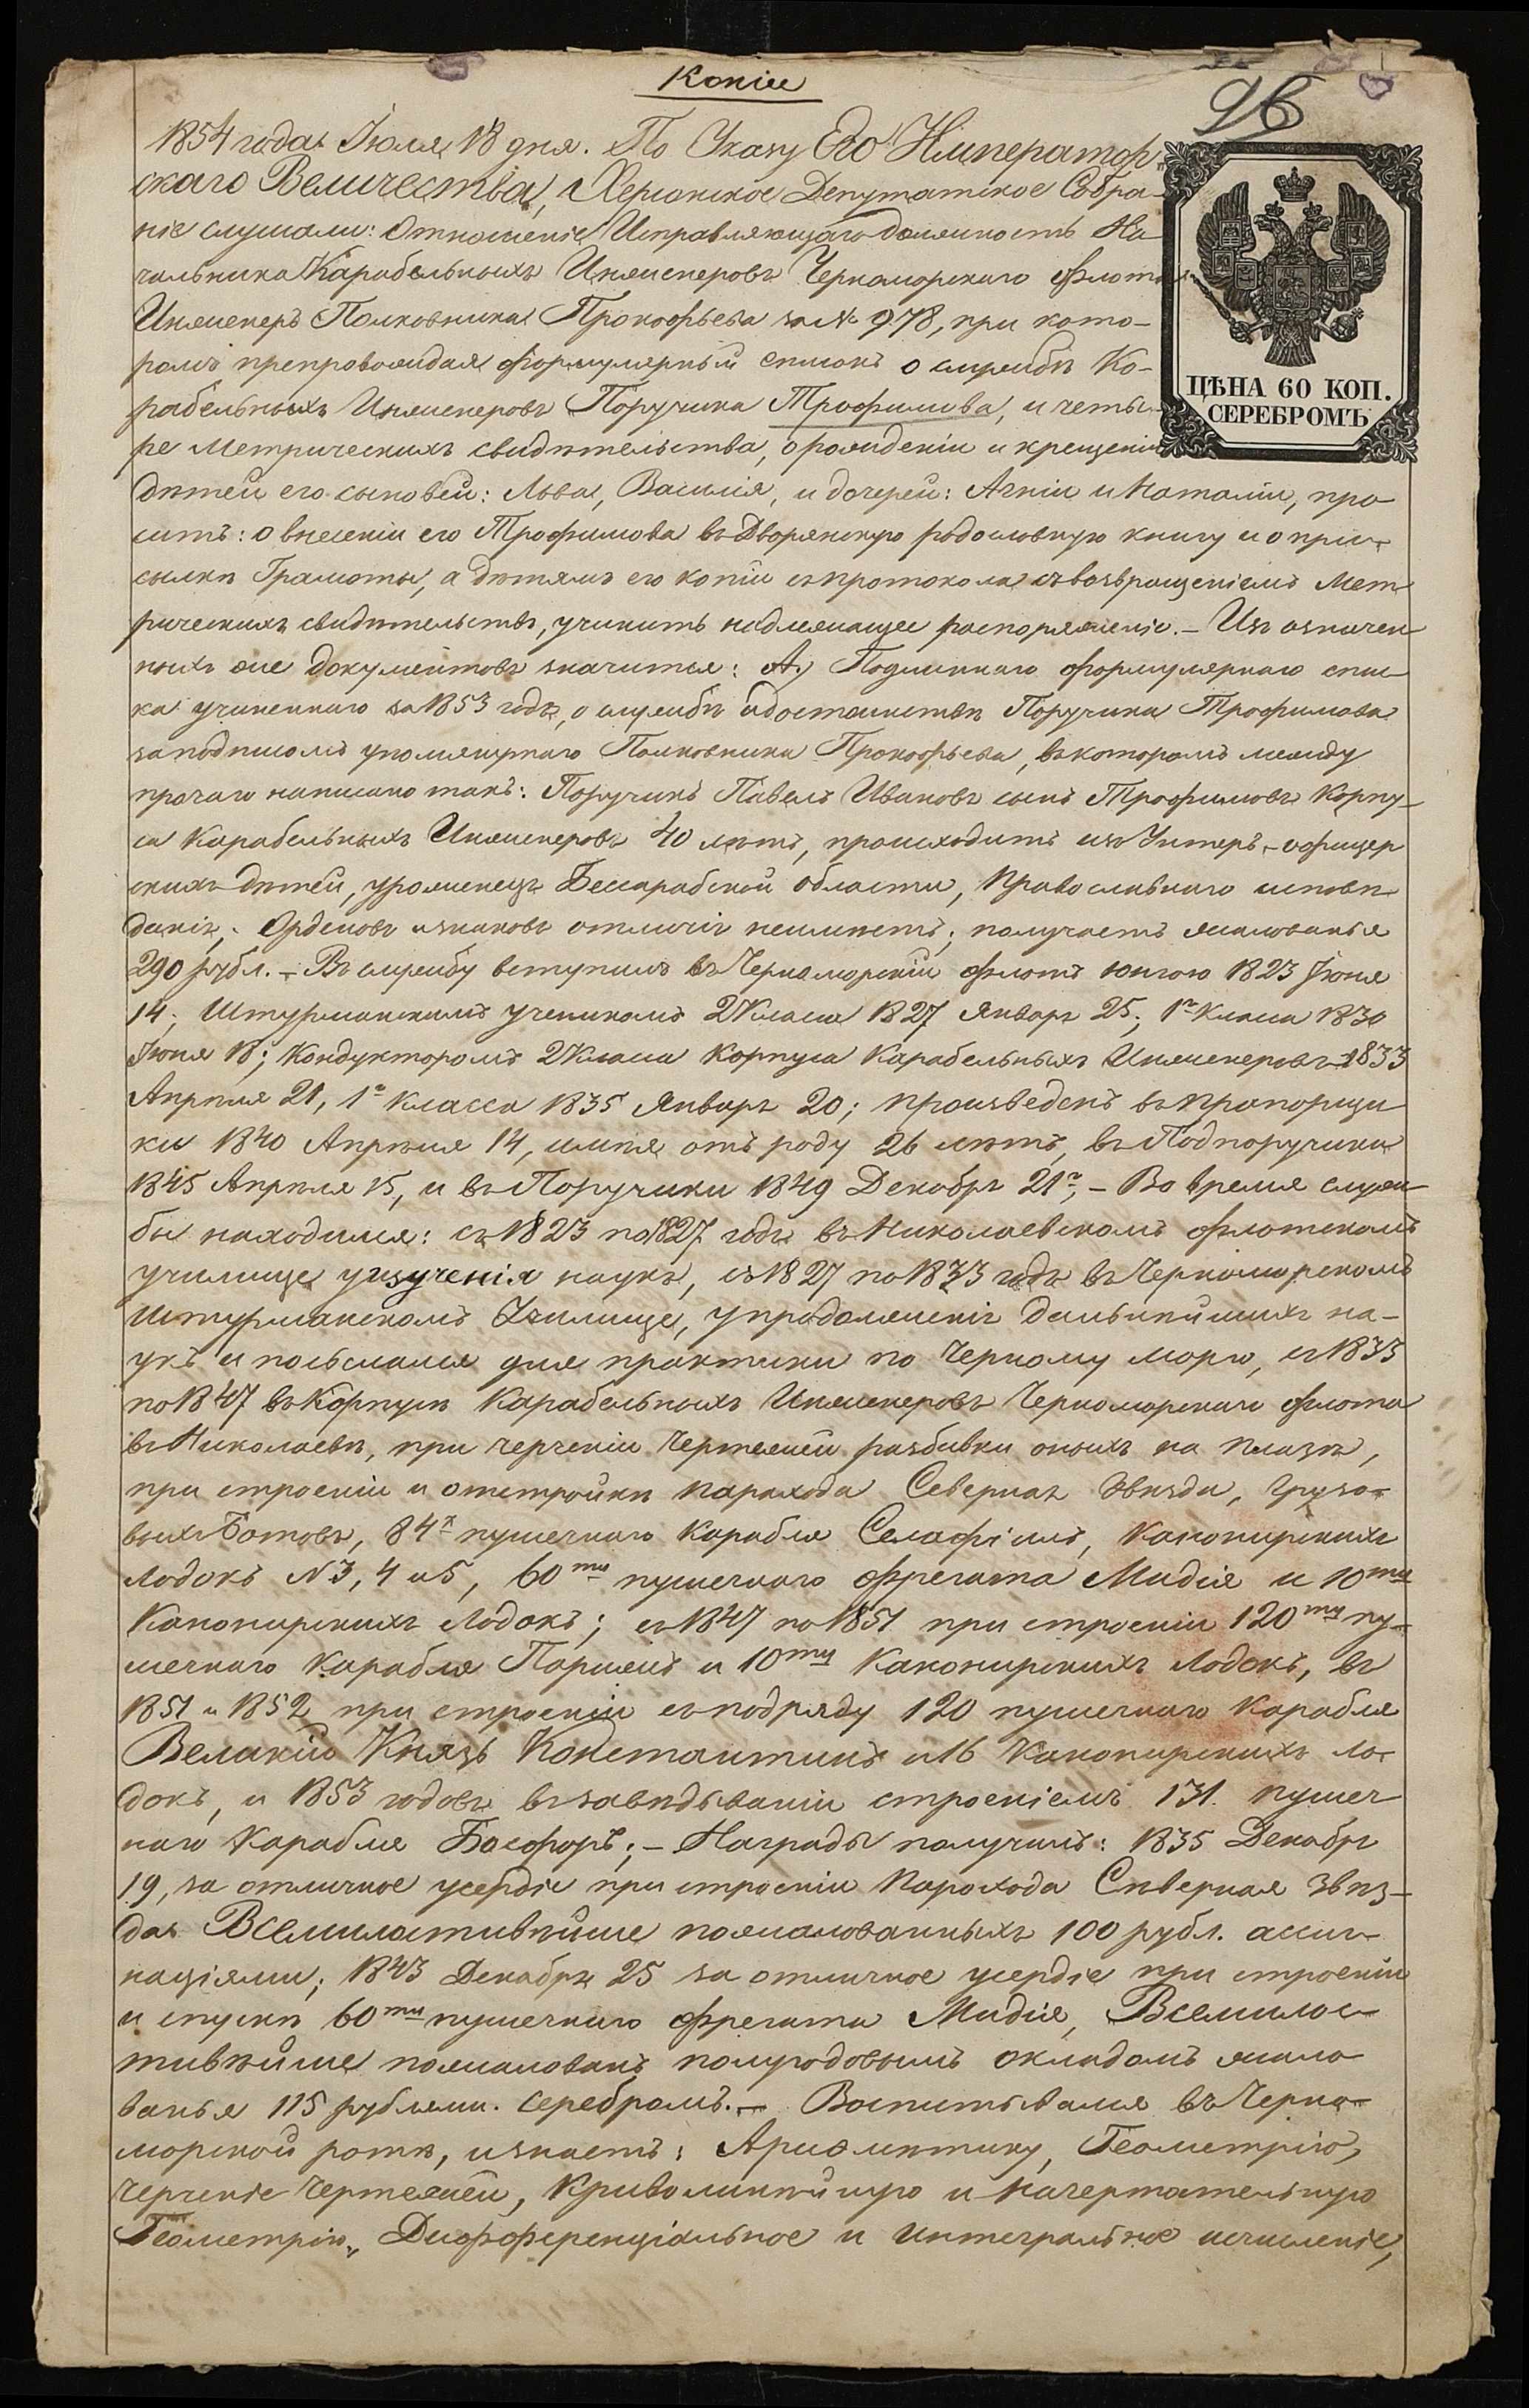 Копія
26
1854 года Іюля 18 дня. По Указу Его Император-
скаго Величества, Херсонское Депутатское Собра-
ніе слушали: Отношеніе Исправляющаго должность На-
чальника Карабельныхъ Инженеровъ Черноморскаго флота
Инженеръ Полковника Прокофьева за № 978, при кото-
ромъ препровождая формулярный списокъ о службѣ Ко-
рабельныхъ Инженеровъ Поручика Трофимова, и четы-
ре Метрическихъ свидѣтельства, о рожденіи и крещеніи
дѣтей его сыновей: Льва, Василія, и дочерей: Агніи и Наталіи, про-
ситъ: о внесеніи его Трофимова въ Дворянскую родословную книгу и о при-
сылкѣ Грамоты, а дѣтямъ его копіи съ протокола съ возвращеніемъ Мет-
рическихъ свидѣтельствъ, учинить надлежащее распоряженіе. – Изъ означен-
ныхъ же документовъ значится: А.) Подлиннаго формулярнаго спис-
ка учиненнаго за 1853 годъ, о службѣ и достоинствѣ Поручика Трофимова
за подписомъ упомянутаго Полковника Прокофьева, въ которомъ между
прочаго написано такъ: Поручикъ Павелъ Ивановъ сынъ Трофимовъ Корпу-
са Карабельныхъ Инженеровъ 40 лѣтъ, происходитъ изъ Унтеръ-офицер
скихъ дѣтей, уроженецъ Бессарабской области, Православнаго исповѣ-
данія, Орденовъ и знаковъ отличія неимѣетъ; получаетъ жалованья
290 рубл. – Въ службу вступилъ въ Черноморскій флотъ юнгою 1823 Іюня
14; Штурманскимъ ученикомъ 2 Класса 1827 Января 25; 1го Класса 1830
Іюня 18; Кондукторомъ 2 Класса Корпуса Карабельныхъ Инженеровъ 1833
Апрѣля 21, 1го Класса 1835 Января 20; произведенъ въ прапорщи-
ки 1840 Апрѣля 14, имѣя отъ роду 26 лѣтъ, въ Подпоручики
1845 Апрѣля 15, и въ Поручики 1849 Декабря 21го, – Во время служ-
бы находился: съ 1823 по 1827 годъ въ Николаевскомъ флотскомъ
училище у изученія наукъ, съ 1827 по 1833 годъ въ Черноморскомъ
Штурманскомъ Училище, у продолженія дальнѣйшихъ на-
укъ и посылался для практики по Черному морю, съ 1833
по 1847 въ Корпусѣ Карабельныхъ Инженеровъ Черноморскаго флота
въ Николаевѣ, при черченіи Чертежей разбивки оныхъ на плазѣ,
при строеніи и отстройкѣ парахода Северная Звѣзда, грузо-
выхъ Ботовъ, 84х пушечнаго Карабля Селафіилъ, Канонирскихъ
Лодокъ № 3, 4 и 5, 60ти пушечнаго фрегата Мидія и 10ти
Канонирскихъ Лодокъ; съ 1847 по 1851 при строеніи 120ти пу-
шечнаго Карабля Парижъ и 10ти Канонирскихъ Лодокъ, въ
1851 и 1852 при строеніи съ подряду 120 пушечнаго Карабля
Великій Князь Константинъ и 16 Канонирскихъ ло-
докъ, и 1853 годовъ въ завѣдываніи строеніемъ 131. пушеч-
наго Карабля Босфоръ; – Награды получилъ: 1835 Декабря
19, за отличное усердіе при строеніи Парохода Сѣверная Звѣз-
да Всемилостивѣйше пожалованныхъ 100 рубл. ассиг-
націями; 1843 Декабря 25 за отличное усердіе при строеніи
и спускѣ 60ти пушечнаго фрегата Мидія, Всемилос-
тивѣйше пожалованъ полугодовымъ окладомъ жало-
ванья 115 рублями. серебромъ. – Воспитывался въ Черно-
морской ротѣ, и знаетъ: Ариѳметику, Геометрію,
Черченіе Чертежей, Криволинѣйную и Начертательную
Геометрію, Дифференціальное и интегральное исчисленіе,
ЦѢНА 60 КОП.
СЕРЕБРОМЪ